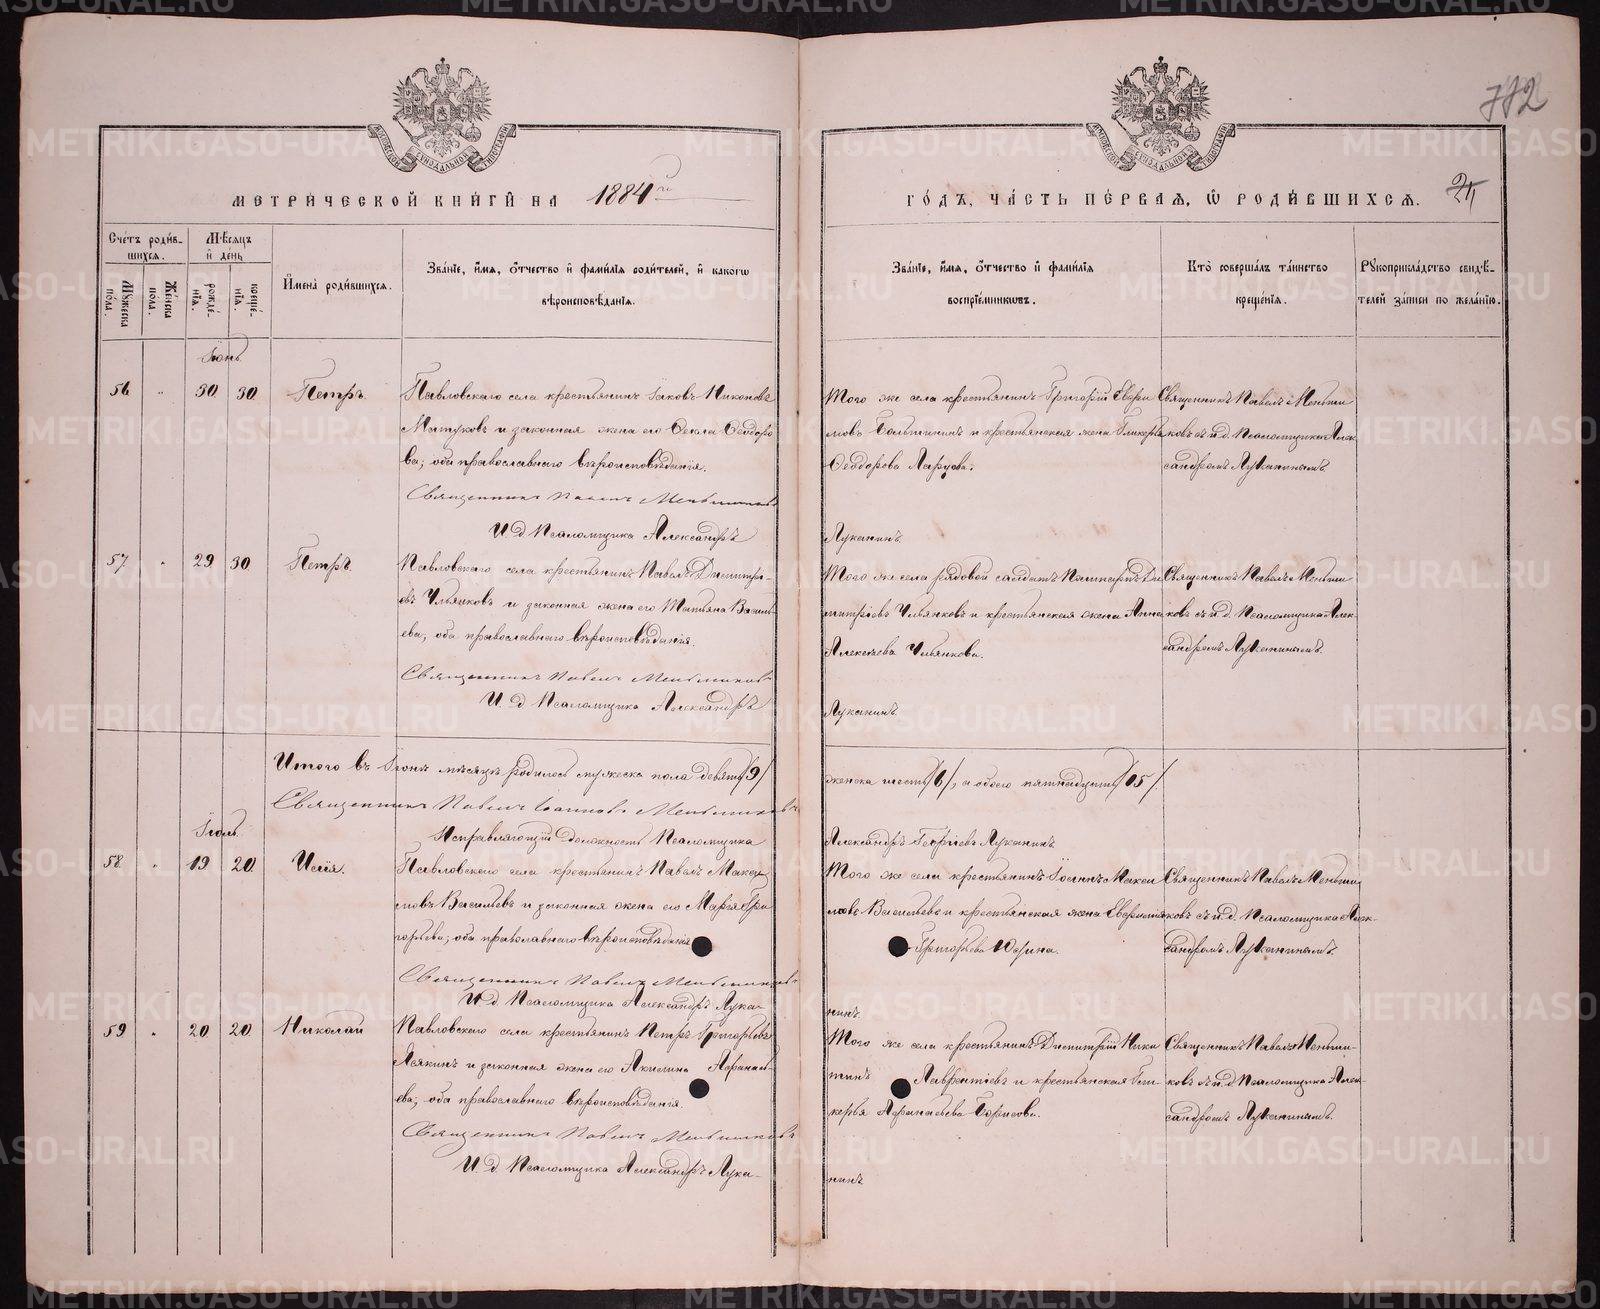 772
МЕТРИЧЕСКОЙ КНИГИ НА 1884 го
ГОДЪ, ЧАСТЬ ПЕРВАЯ, Ѿ РОДИВШИХСЯ.
Счетъ родив-
шихся.
Мужеска пола.
Женска пола.
Мѣсяцъ
и день
рожде-
нія.
креще-
нія.
Имена родившихся.
Званіе, имя, отчество и фамилія родителей, и какогѡ
вѣроисповѣданія.
Званіе, имя, отчество и фамилія
воспріемникѡвъ.
Кто совершалъ таинство
крещенія.
Рукоприкладство свидѣ-
телей записи по желанію.
Іюнь
56 30 30 Петръ
Павловскаго села крестьянинъ Іаковъ Никоновъ
и законная жена его Ѳекла Ѳеодоро
ва; оба православнаго вѣроисповѣданія.
Священникъ Павелъ Меньшиковъ
И. д. Псаломщика Александръ
Того же села крестьянинъ Григорій
и крестьянская жена
Ѳеодорова
Луканинъ.
Священникъ Павелъ Меньши
ковъ съ и. д. Псаломщика Алек-
сандромъ Луканинымъ.
57 29 30 Петръ
Павловскаго села крестьянинъ Павелъ Димитрі-
евъ Чульянковъ и законная жена его Татьяна Василь
ева; оба православнаго вѣроисповѣданія.
Священникъ Павелъ Меньшиковъ
И. д. Псаломщика Александръ
Того же села рядовой солдатъ Ди
митріевъ и крестьянская жена Анна
Алексѣева
Луканинъ
Священникъ Павелъ Меньши
ковъ съ и. д. Псаломщика Алек-
сандромъ Луканинымъ.
Итого въ Іюнѣ мѣсяцѣ родилось мужеска пола девять /9/
женска шесть /6/, а обоего пятнадцать /15/.
Священникъ Павелъ Іоанновъ Меньшиковъ
Исправляющій должность Псаломщика
Александръ Георгіевъ Луканинъ
Іюль
58 19 20 Илія.
Павловскаго села крестьянинъ Павелъ Макси
мовъ Васильевъ и законная жена его Марія Гри
горьева; оба православнаго вѣроисповѣданія
Священникъ Павелъ Меньшиковъ
И. д. Псаломщика Александръ Лука-
Того же села крестьянинъ Іоаннъ Макси
мовъ Васильевъ и крестьянская жена
Григорьева Юрина.
нинъ
Священникъ Павелъ Меньши
ковъ съ и. д. Псаломщика Алек-
сандромъ Луканинымъ.
59 20 20 Николай
Павловскаго села крестьянинъ Петръ Григорьевъ
и законная жена его Акилина Афанась-
ева; оба православнаго вѣроисповѣданія.
Священникъ Павелъ Меньшиковъ
И. д. Псаломщика Александръ Лука-
Того же села крестьянинъ Димитрій Ники
тинъ Лаврентіевъ и крестьянская Гли-
керья Афанасьева Борисова.
нинъ
Священникъ Павелъ Меньши-
ковъ съ и. д. Псаломщика Алек-
сандромъ Луканинымъ.
METRIKI.GASO-URAL.RU